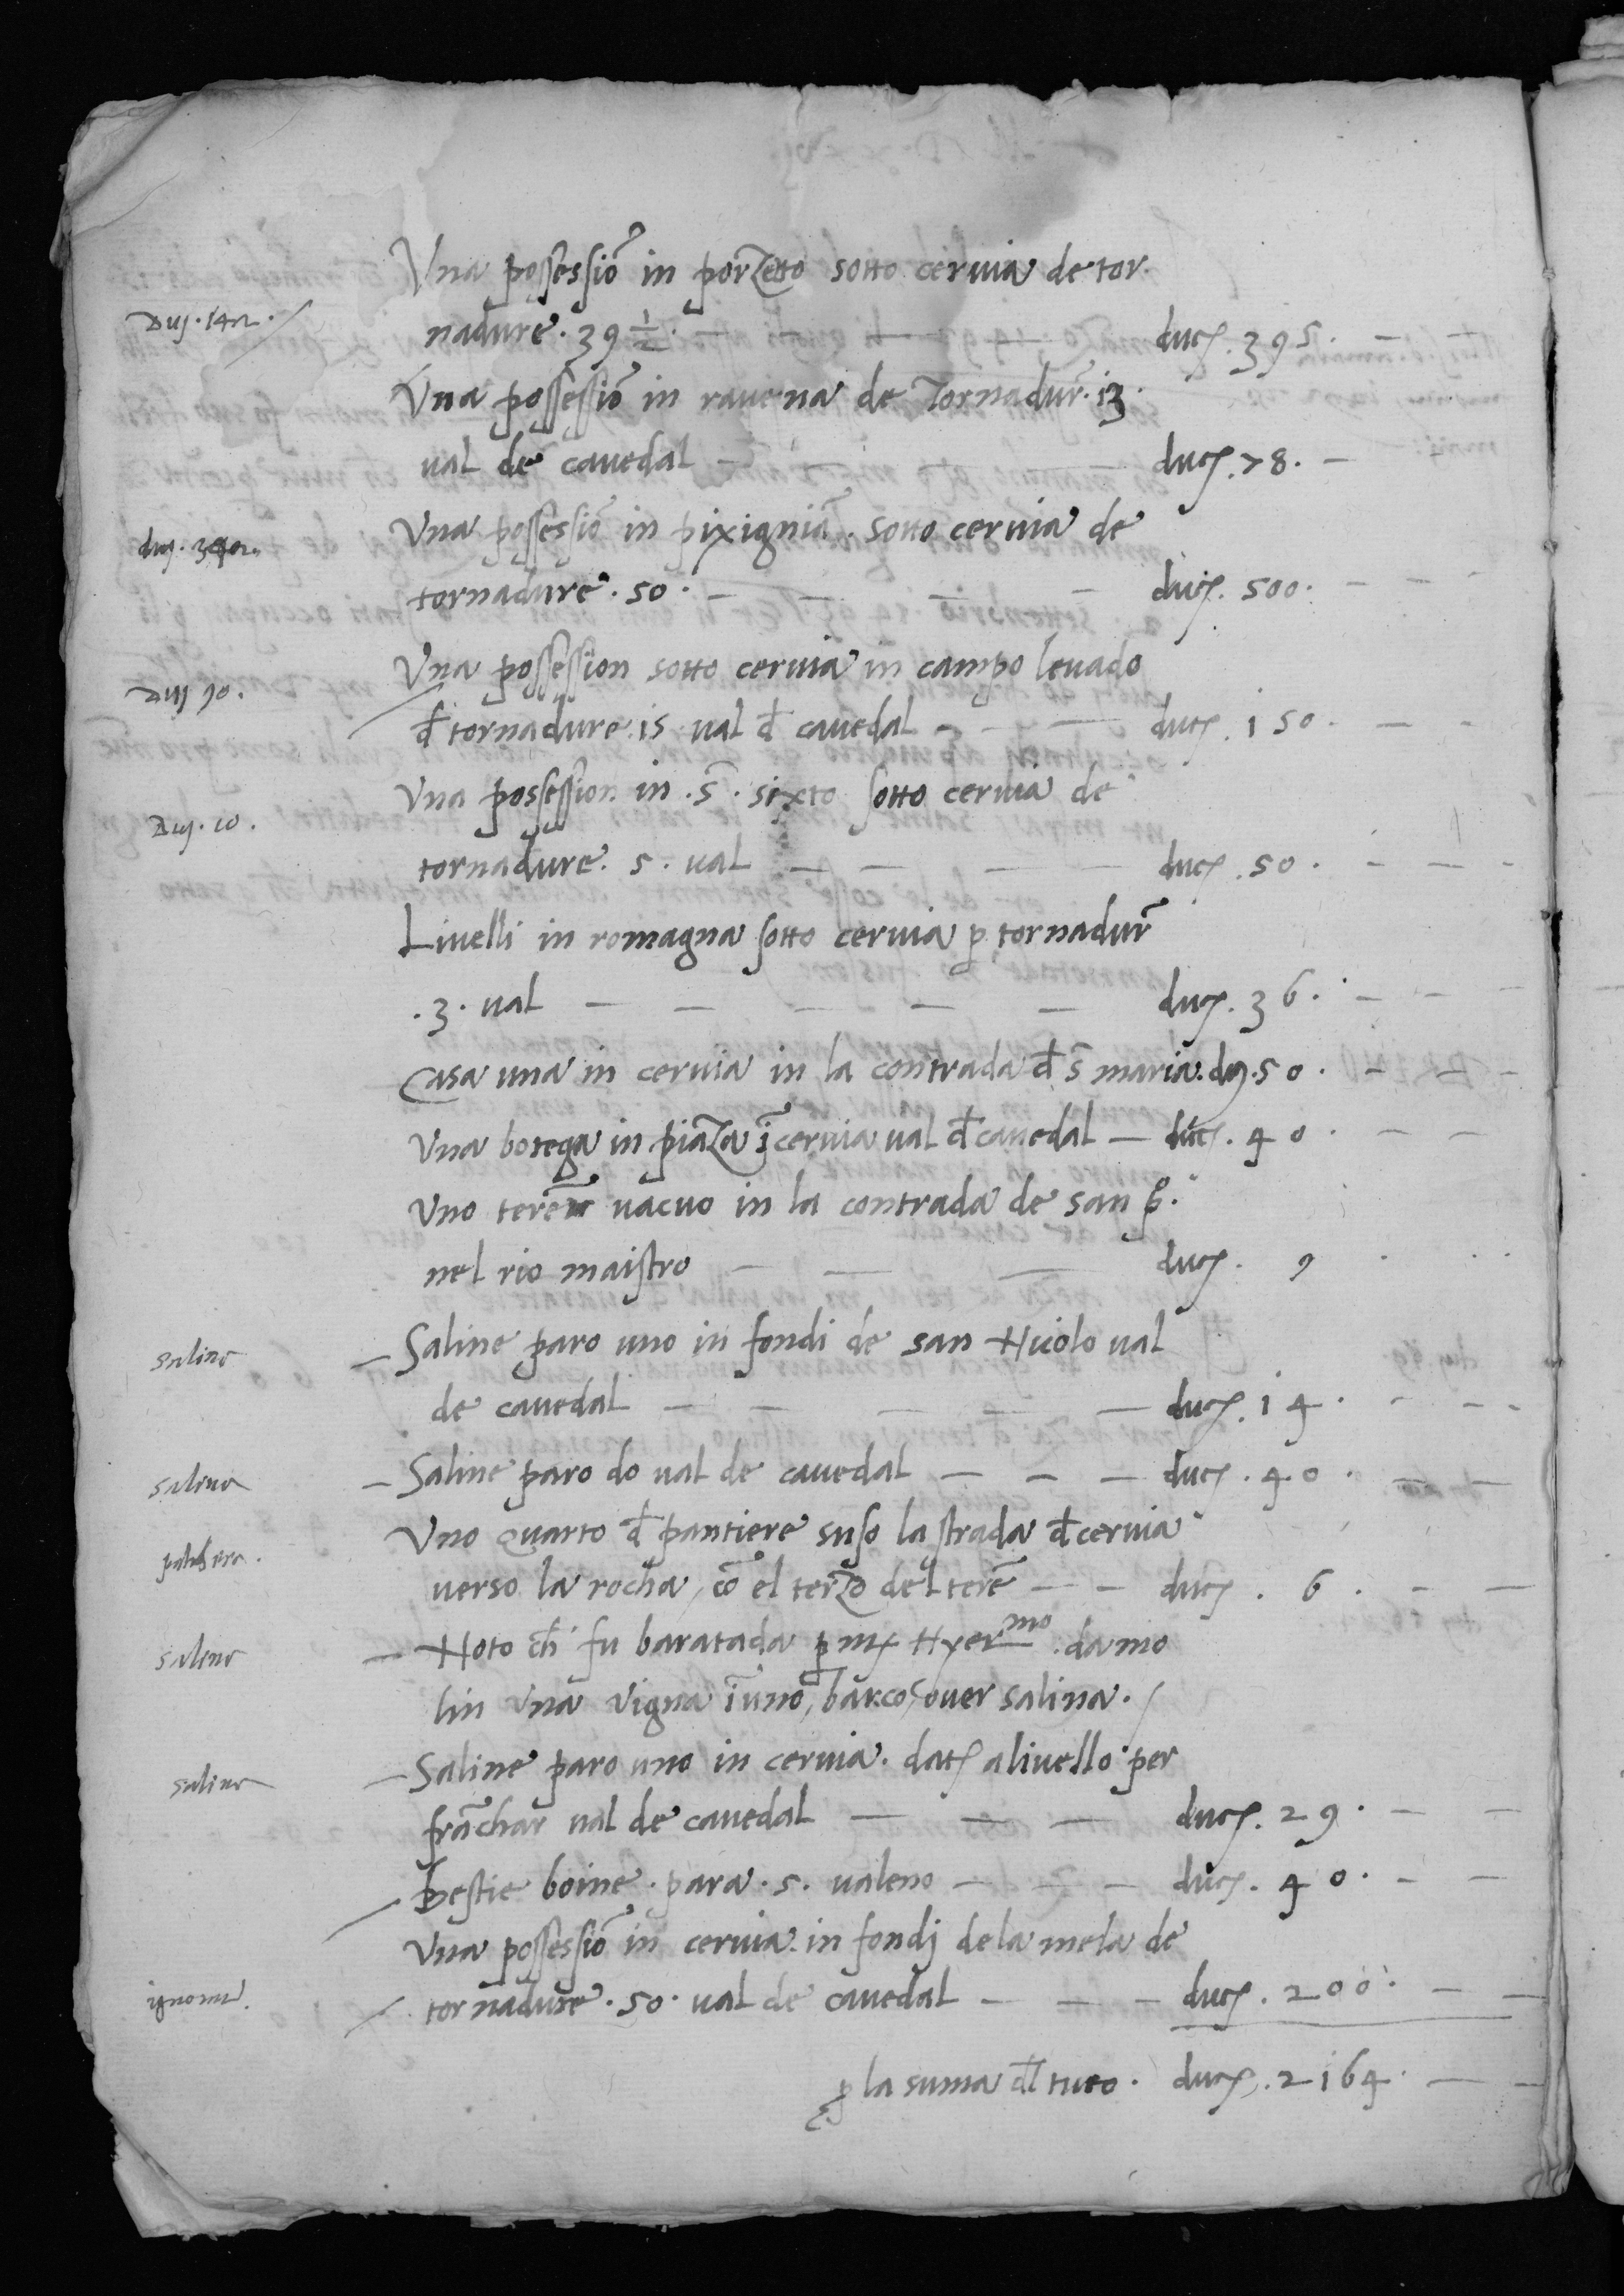 Vna possessiõ in porzetto sotto cervia de tor
Duj. 142. /
nadure. 39 ½. — — — — duc. 395. — —
Vna possessiõ in ravena de Tornadur̃. 13.
val de cavedal — — — duc. 78. —
Vna possessiõ in pixigniã. sotto cervia de
duj. 342.
tornadure. 50. — — — — duc. 500. — — —
Vna possession sotto cervia in campo levado
Duj 90.
đ tornadure 15 val đ cavedal — — — duc. 150. — —
Vna possession in .S̃. sixto sotto cervia de
Duj. 10.
tornadure. 5. val — — — — duc. 50. — — —
Livelli in romagna sotto cervia p tornadur̃
.3. val — — — — — duc. 36. — — —
Casa una in cervia in la contrada đ S̃ maria. duj. 50. — — —
Vna botega in piaza ĩ cervia val đ cavedal — duc. 40. — —
Vno terẽ vacuo in la contrada de san pº.
nel rio maistro — — — duc. 9 .
saline
— Saline paro uno in fondi de san Nicolo val
de cavedal — — — — — duc. 14. — — —
saline
— Saline paro do val de cavedal — — — duc. 40. — —
Vno quarto đ pantiere suso la strada đ cervia
verso la rocha, cõ el terzo del terẽ — — duc. 6. — —
saline
— Noto ch̃ fu baratada p mȷ Hyer.mo da mo
lin una vigna ĩ uno, barco, over salina. /
saline
— Saline paro uno in cervia. dat a livello per
frãchar val de cavedal — — — duc. 29. — —
Bestie boine. para. 5. valeno — — — duc. 40. — —
Vna possessiõ in cervia. in fondj de la mela de
tornadure. 50. val de cavedal — — — duc. 200. — —
p la suma đl tuto. duc. 2164. — —